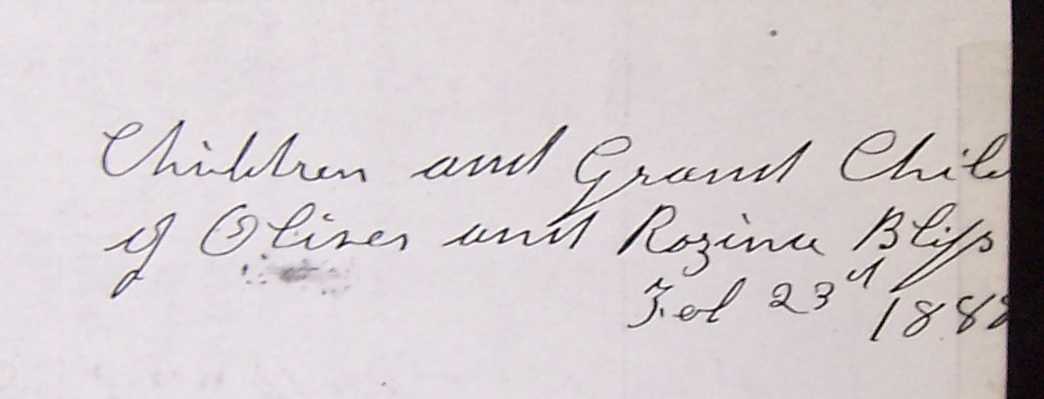 Children and Grand Chil
of Oliver and Rozina Bliss
Feb 23d 188